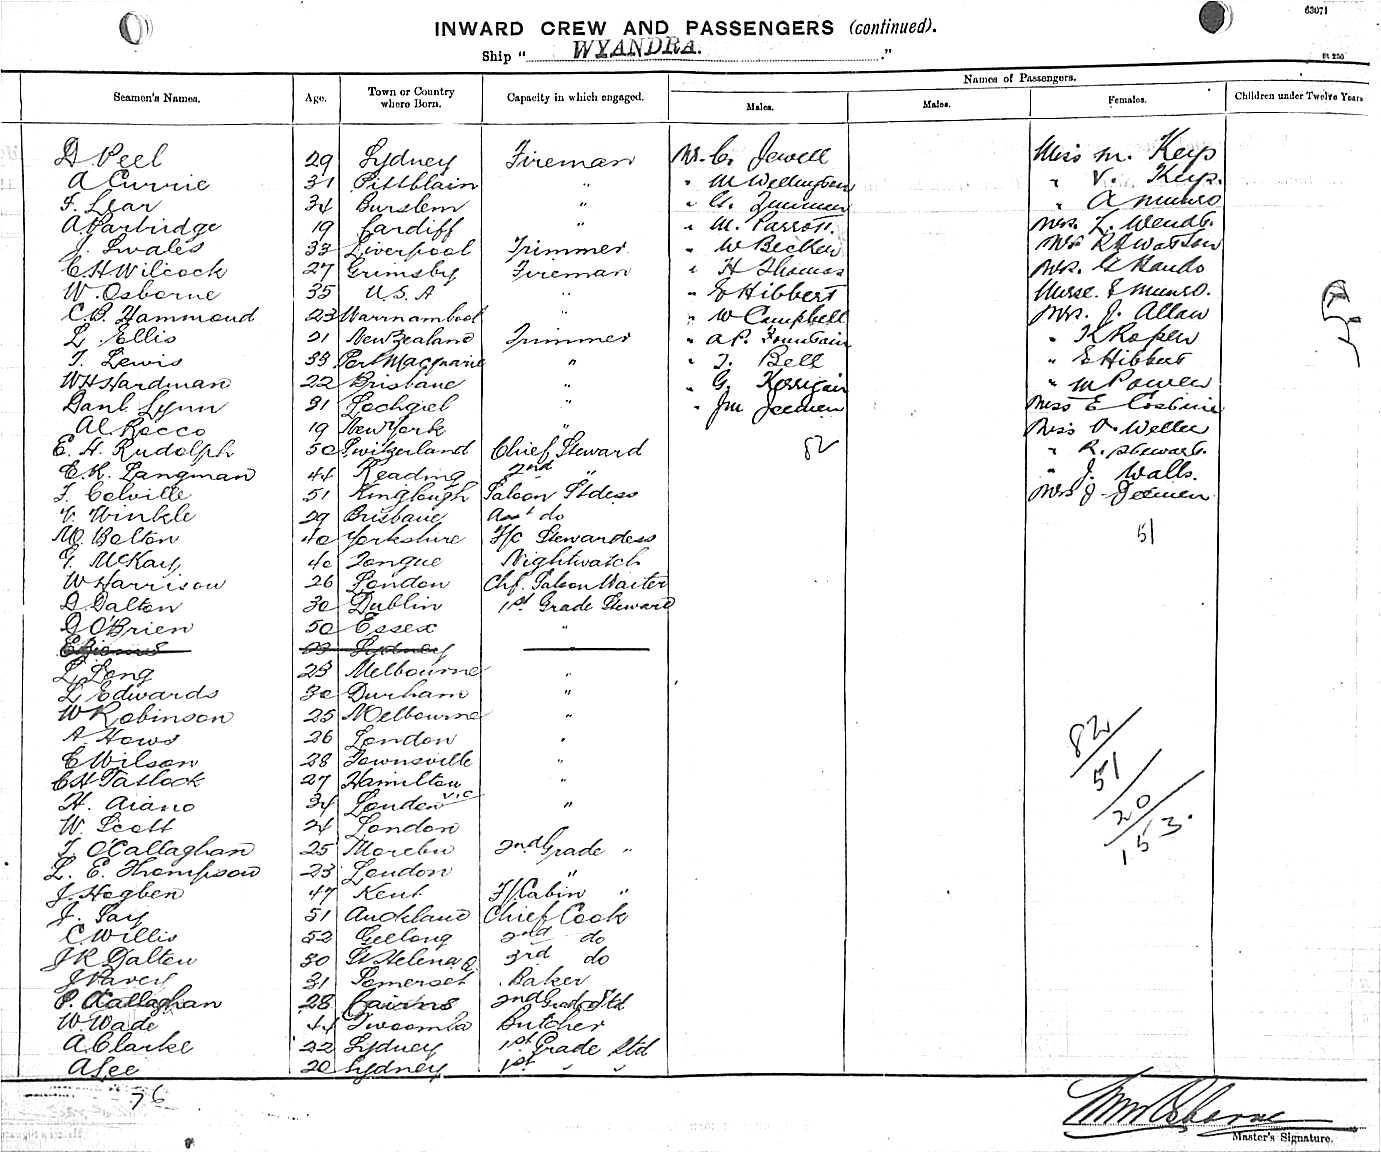 63071
INWARD CREW AND PASSENGERS (continued).
Ship " WYANDRA. "
Names of Passengers.
Seamen's Names. Age. Town or Country where Born. Capacity in which engaged. Males. Males. Females. Children under Twelve Years
D Peel 29 Sydney Fireman Mr. C. Jewell Miss M. Keys
A Currie 31 Pittblain " " M Wellington " V. Keys.
F. Lear 34 Burslem " " " A Munro
A Parbridge 19 Cardiff " " M. Parrott. Mrs. L. Wendt.
J. Swales 33 Liverpool Trimmer " W Becker Mrs R H Watson
C H Wilcock 27 Grimsby Fireman " H Thomas Mrs.
W. Osborne 35 U.S.A " " E Hibbert Nurse. E Munro.
C. B. Hammond 23 Warrnambool " " W Campbell Mrs. J. Allan
L Ellis 21 New Zealand Trimmer " A P. Fountain " K Roper
T. Lewis 33 Port Macquarie " " J. Bell " E Hibbert
W H Hardman 22 Brisbane " " G. Korrigain " M Power
Danl Lynn 31 Lochgiel " " Jm Jeemen Miss E
Al Rocco 19 New York " Miss V. Weller
E. H. Rudolph 50 Switzerland Chief Steward 82 " R. Stewart.
E. R. Langman 44 Reading 2nd " " J. Walls.
F. Colville 51 Saloon Stdess Mrs J Jeemen
V. Winkle 29 Brisbane Asst do
M. Bolton 40 Yorkshire F/C Stewardess 51
G. McKay 40 Tongue Nightwatch
W Harrison 26 London Chf. Saloon Waiter
D Dalton 30 Dublin 1st Grade Steward
D O'Brien 50 Essex "
23 Sydney
L Long 23 Melbourne "
L Edwards 30 Durham "
W Robinson 25 Melbourne "
A. Hows 26 London " 82
C Wilson 28 Townsville " 51
C H Tatlock 27 Hamilton Vic "
H. Aiano 34 London " 20
W. Scott 24 London 153.
T. O'Callaghan 25 2nd Grade "
L. E. Thompson 23 London "
J. Hogben 47 Kent F/Cabin "
J. Say 51 Auckland Chief Cook
C Willis 52 Geelong 2nd do
J R Dalton 30 St Helena Q. 3rd do
J Pavey 31 Somerset Baker
P. O'Callaghan 28 Cairns 2nd Grade Std
W. Wade 44 Twoomba Butcher
A. Clarke 22 Sydney 1st Grade Std
A Lee 20 Sydney 1st " "
76
Wm Osborne
Master's Signature.